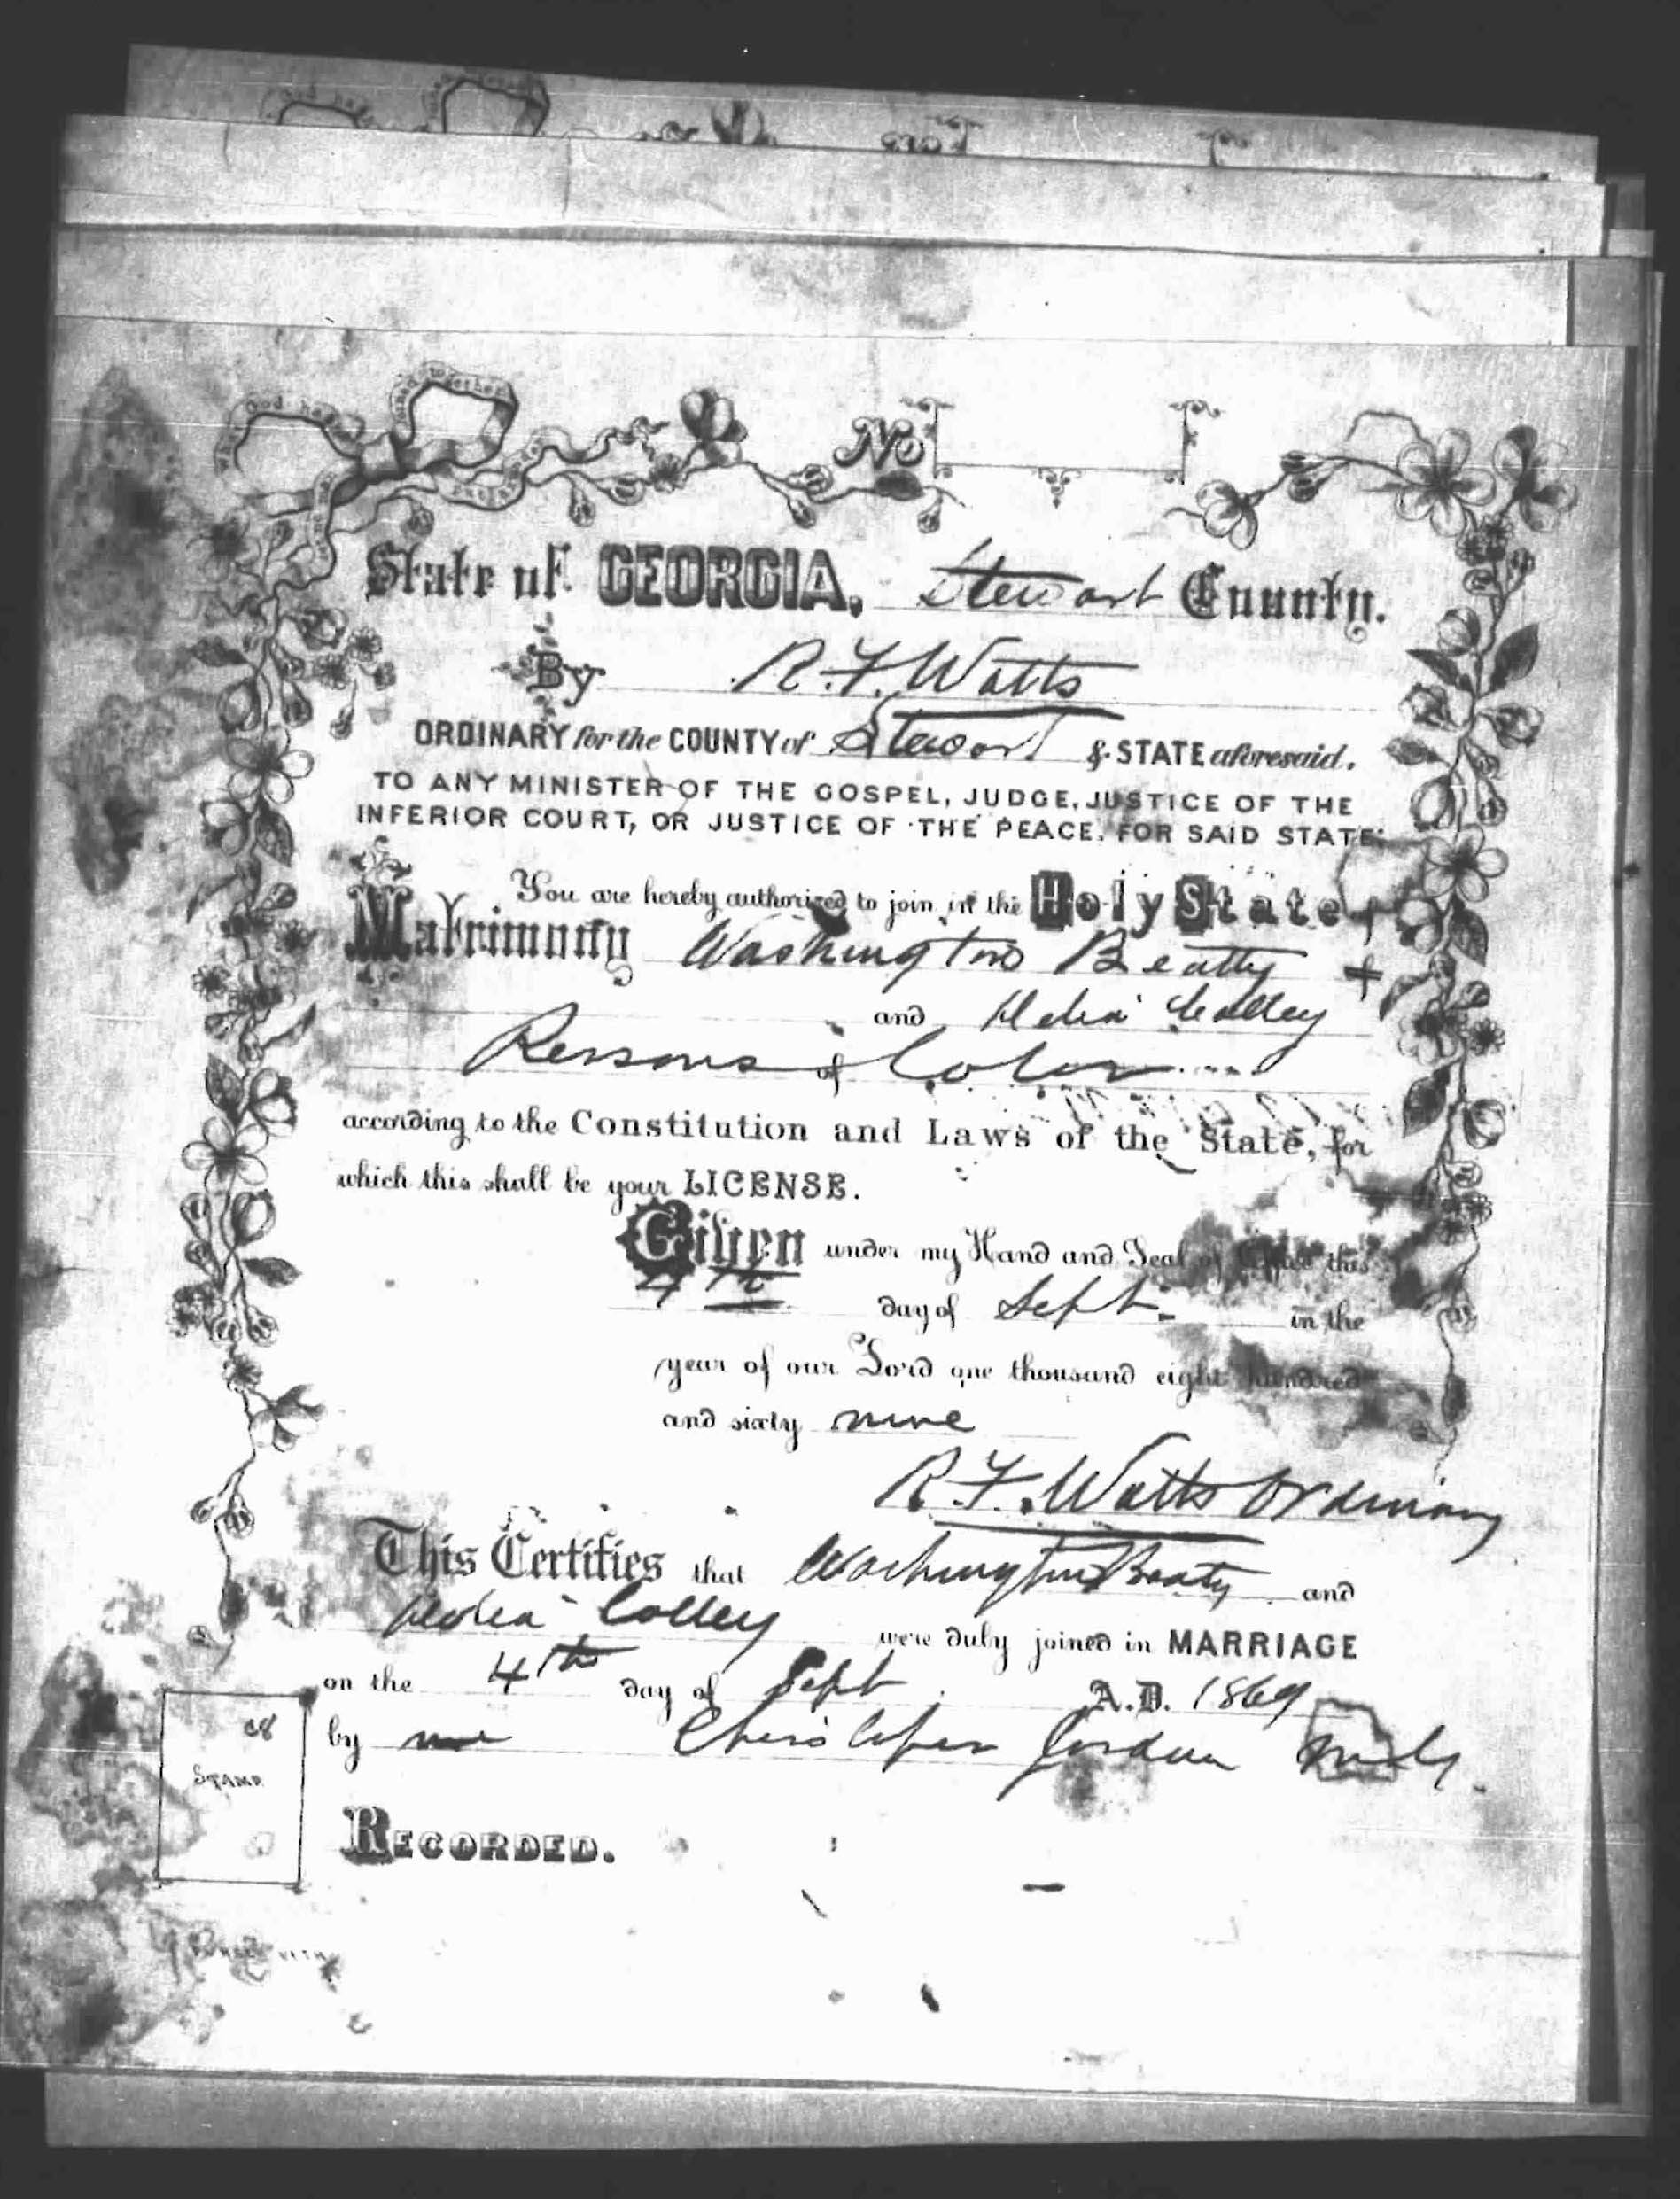 No
State of GEORGIA, Stewart County.
By R. F. Watts
ORDINARY for the COUNTY of Stewart & STATE aforesaid.
TO ANY MINISTER OF THE GOSPEL, JUDGE, JUSTICE OF THE
INFERIOR COURT, OR JUSTICE OF THE PEACE, FOR SAID STATE:
You are hereby authorized to join in the Holy State of
Matrimony Washington Beatty +
and Colley
Persons of Color
according to the Constitution and Laws of the State, for
which this shall be your LICENSE.
Given under my Hand and Seal of Office this
4th day of Sept. in the
year of our Lord one thousand eight hundred
and sixty nine
R. F. Watts Ordinary
This Certifies that Washington Beaty and
Colley were duly joined in MARRIAGE
on the 4th day of Sept A.D. 1869
by me Jordan
STAMP
RECORDED.